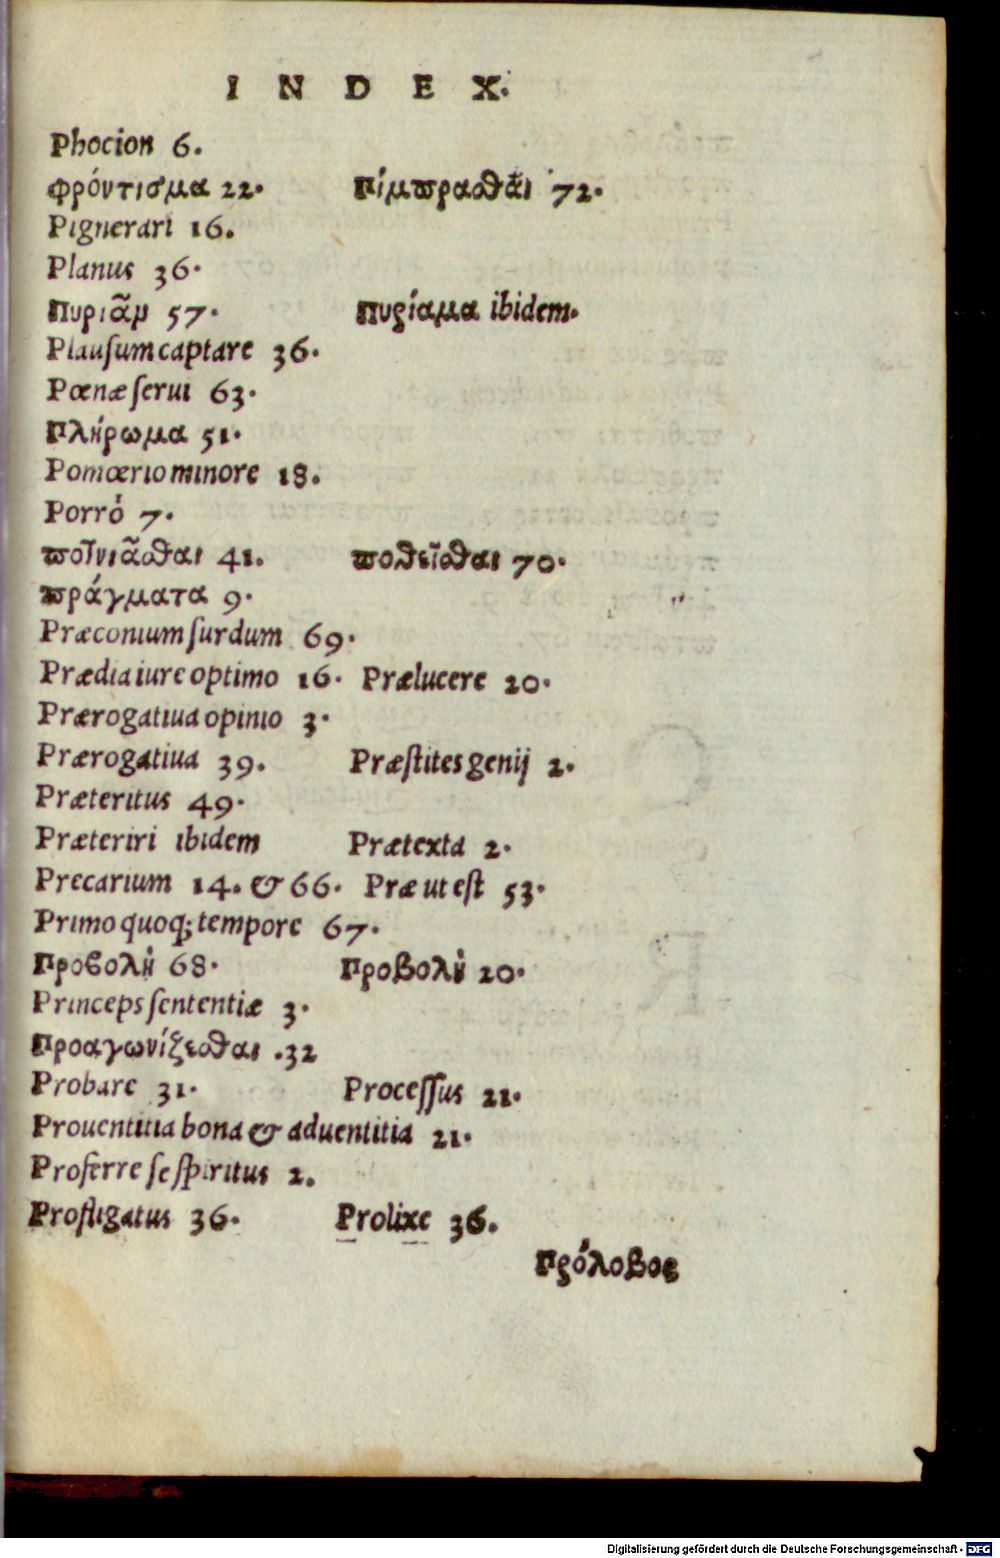 INDEX.
Phocion 6.
φρόντισμα 22. Πίμπρασθαι 72.
Pignerari 16.
Planus 36.
Πυριᾶμ 57. Πυρίαμα ibidem.
Plausum captare 36.
Pœnæ serui 63.
Πλήρωμα 51.
Pomœrio minore 18.
Porró 7.
ποτνιᾶσθαι 41. ποθεῖσθαι 70.
πράγματα 9.
Præconium surdum 69.
Prædia iure optimo 16. Prælucere 20.
Prærogatiua opinio 3.
Prærogatiua 39. Præstites genij 2.
Præteritus 49.
Præteriri ibidem Prætexta 2.
Precarium 14. & 66. Præ ut est 53.
Primo quoq; tempore 67.
Προβολὴ 68. Προβολὴ 20.
Princeps sententiæ 3.
Προαγωνίζεσθαι .32
Probare 31. Processus 21.
Prouentitia bona & aduentitia 21.
Proferre se spiritus 2.
Profligatus 36. Prolixe 36.
Πρόλοβος
Digitalisierung gefördert durch die Deutsche Forschungsgemeinschaft - DFG